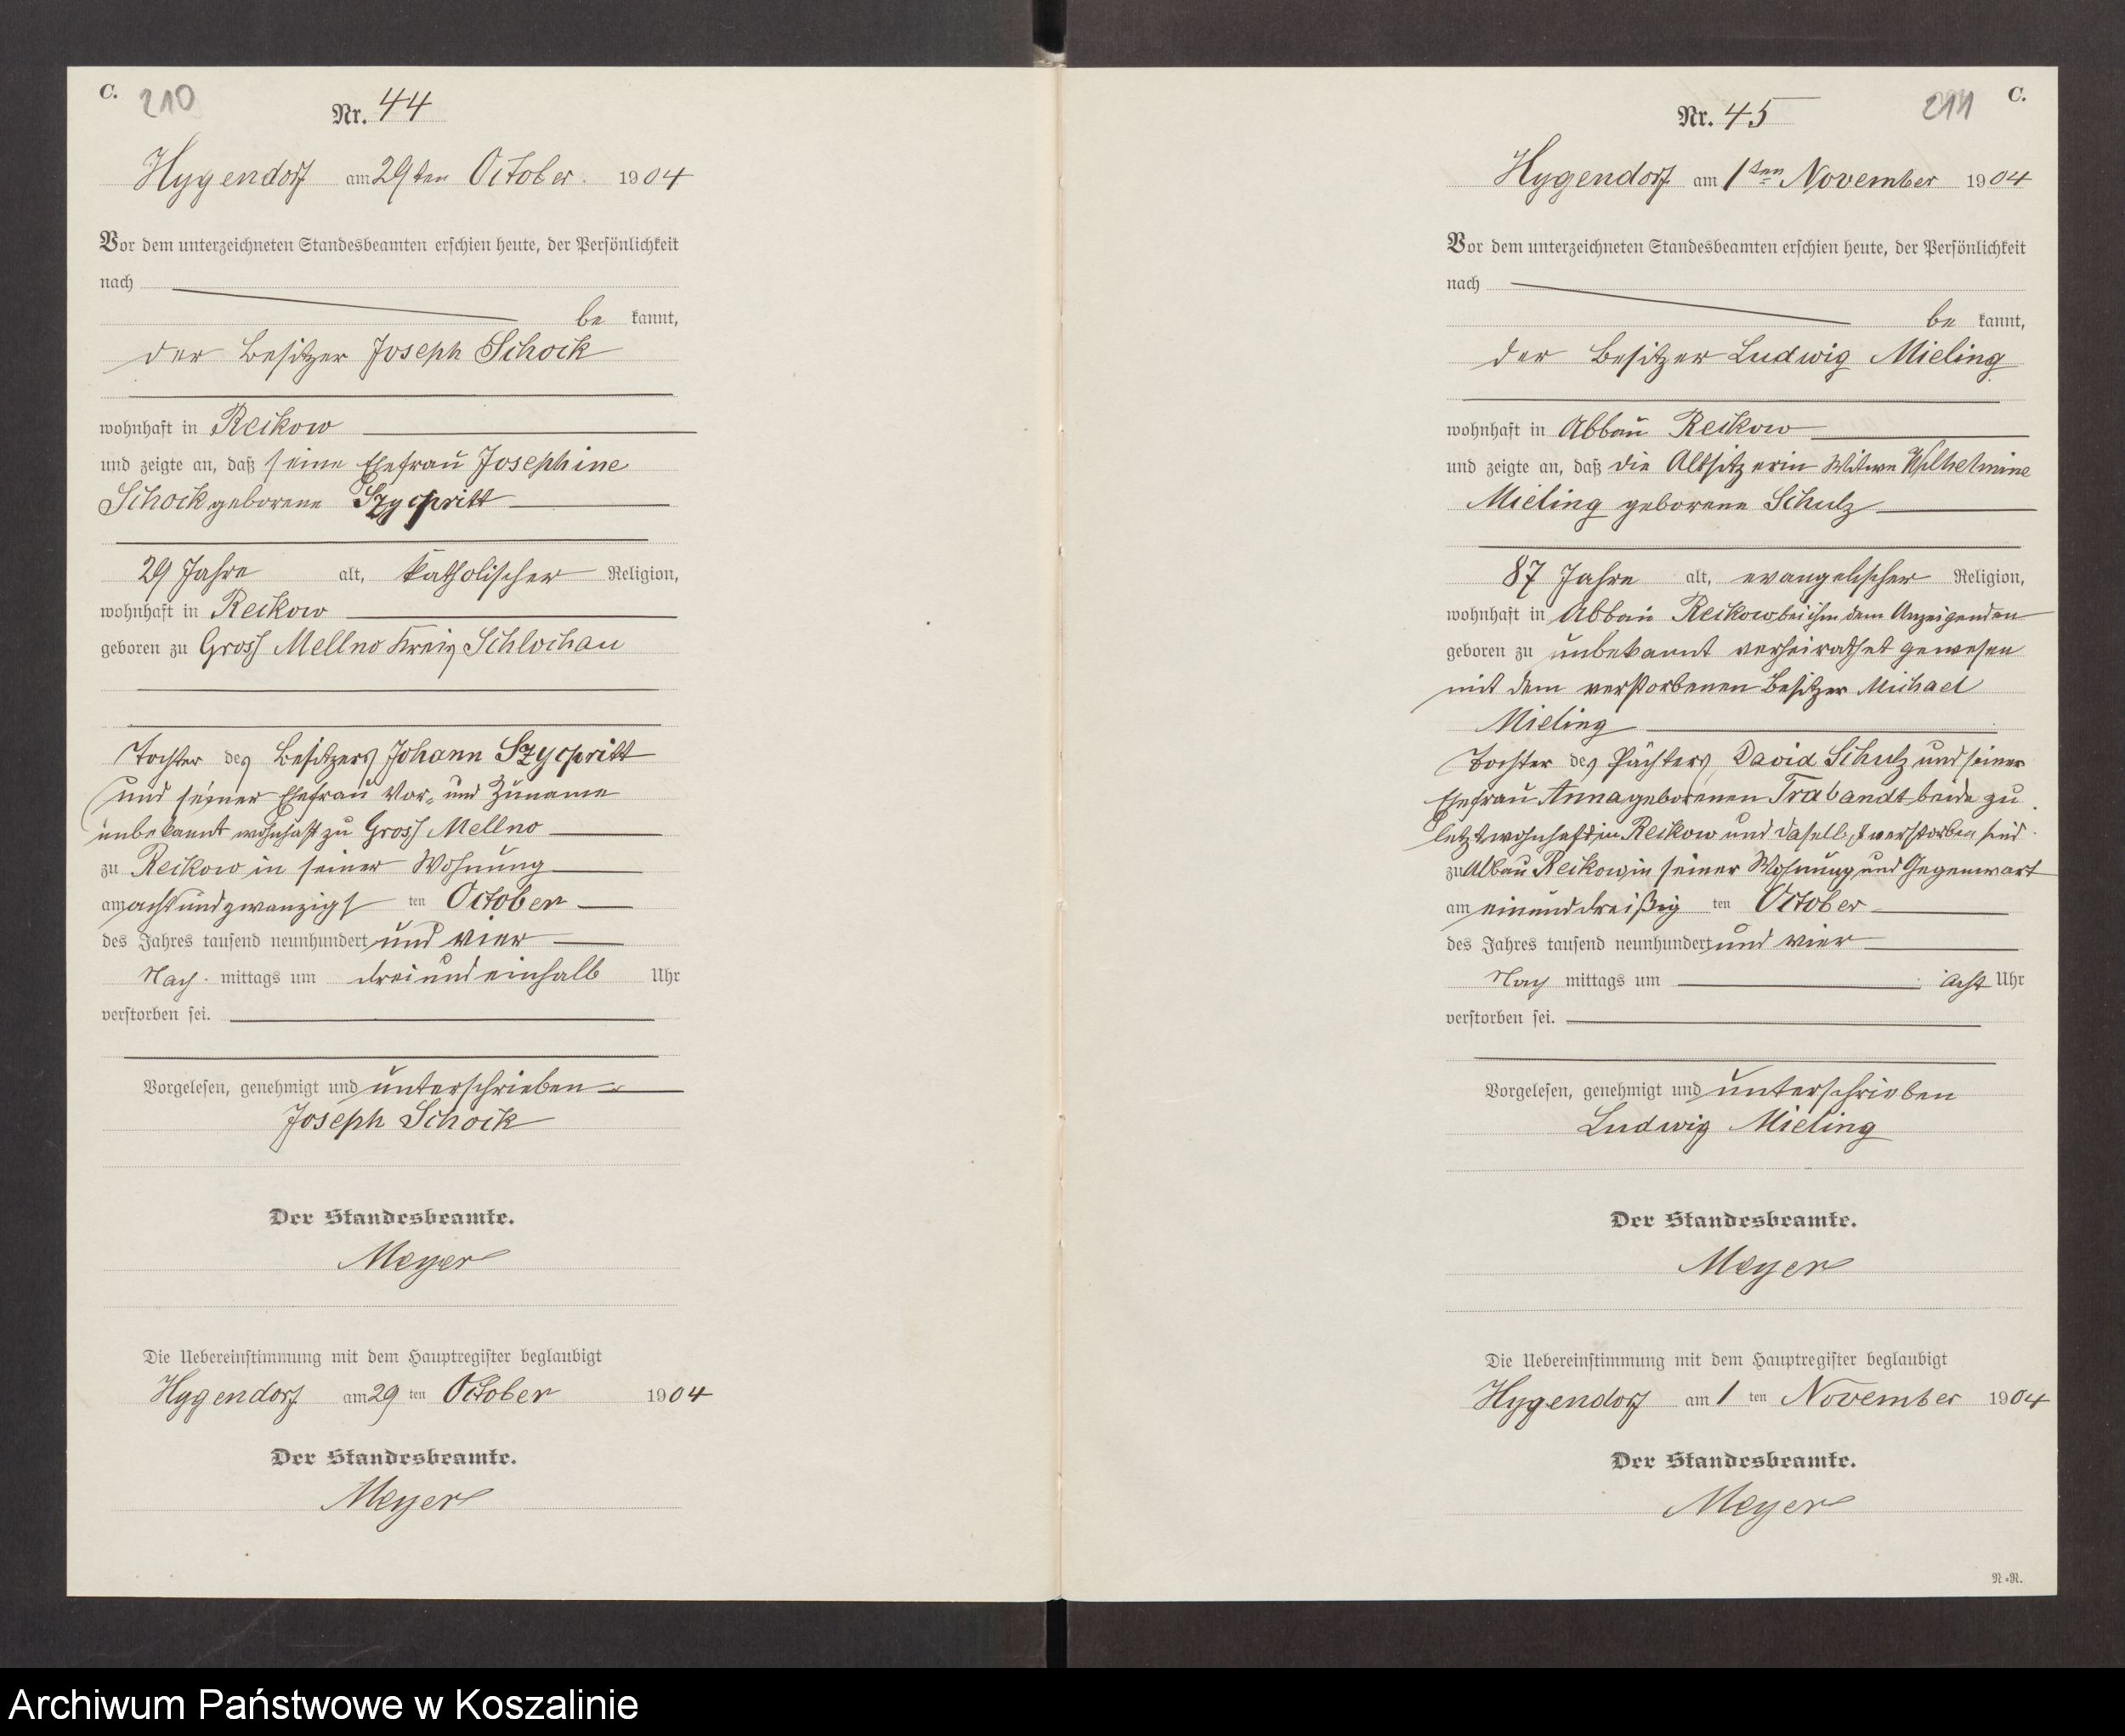 C.
210
Nr. 44
Hygendorf am 29ten October. 1904
Vor dem unterzeichneten Standesbeamten erschien heute, der Persönlichkeit
nach
be kannt,
der Besitzer Joseph Schock
wohnhaft in Reckow
und zeigte an, daß seine Ehefrau Josephine
Schock geborene Szycpritt
29 Jahre alt, katholischer Religion,
wohnhaft in Reckow
geboren zu Gross Mellno Kreis Schlochau
Tochter des Besitzers Johann Szycpritt
und seiner Ehefrau Vor- und Zuname
unbekannt wohnhaft zu Gross Mellno
zu Reckow in seiner Wohnung
am achtundzwanzigs ten October
des Jahres tausend neunhundert und vier
Nach mittags um drei und einhalb Uhr
verstorben sei.
Vorgelesen, genehmigt und unterschrieben
Joseph Schock
Der Standesbeamte.
Meyer
Die Uebereinstimmung mit dem Hauptregister beglaubigt
Hygendorf am 29 ten October 1904
Der Standesbeamte.
Meyer
C.
211
Nr. 45
Hygendorf am 1ten November 1904
Vor dem unterzeichneten Standesbeamten erschien heute, der Persönlichkeit
nach
be kannt,
der Besitzer Ludwig Mieling
wohnhaft in Abbau Reckow
und zeigte an, daß die Altsitzerin Witwe Wilhelmine
Mieling geborene Schulz
87 Jahre alt, evangelischer Religion,
wohnhaft in Abbau Reckow bei ihm dem Anzeigenden
geboren zu unbekannt verheirathet gewesen
mit dem verstorbenen Besitzer Michael
Mieling
Tochter des Pächters David Schulz und seiner
Ehefrau Anna geborenen Trabandt beide zu
letzt wohnhaft in Reckow und daselbst verstorben sind.
zu Abbau Reckow in seiner Wohnung und Gegenwart
am einunddreißig ten October
des Jahres tausend neunhundert und vier
Nach mittags um acht Uhr
verstorben sei.
Vorgelesen, genehmigt und unterschrieben
Ludwig Mieling
Der Standesbeamte.
Meyer
Die Uebereinstimmung mit dem Hauptregister beglaubigt
Hygendorf am 1 ten November 1904
Der Standesbeamte.
Meyer
N.-R.
Archiwum Państwowe w Koszalinie